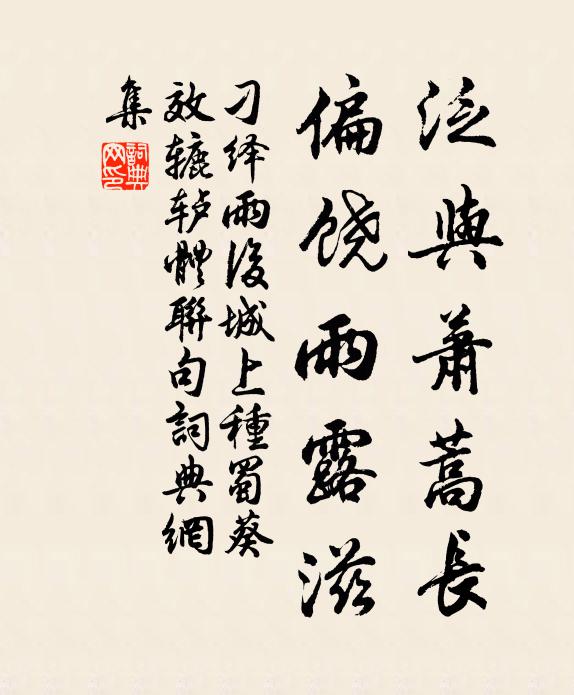 泛與蕭蒿長
偏饶雨露滋
刁绎雨後城上種蜀葵
效辘轳體聯句詞典網
集
詞典網印